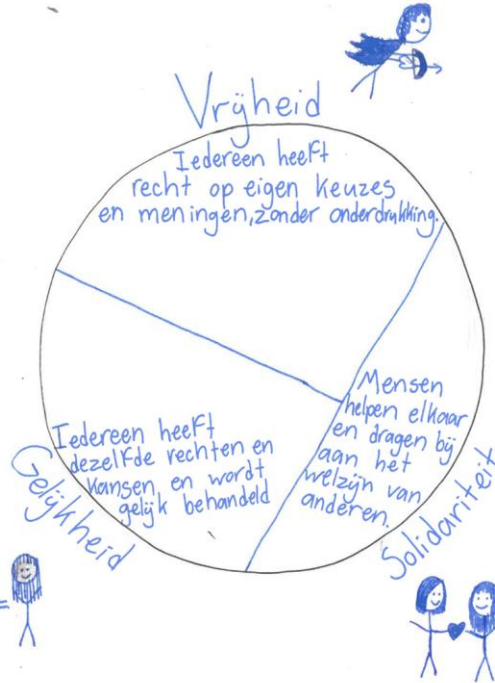 Vrijheid
Iedereen heeft
recht op eigen keuzes
en meningen, zonder onderdrukking.
Mensen
helpen elkaar
en dragen bij
aan het
welzijn van
anderen.
Solidariteit
Iedereen heeft
dezelfde rechten en
kansen en wordt
gelijk behandeld
Gelijkheid
=